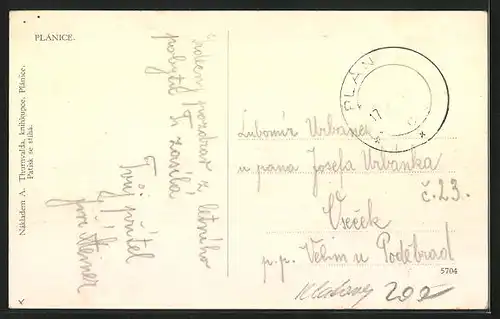 PLÁNICE.
Nákladem A. Thornvalda, knihkupce, Plánice.
Patisk se stíhá.
Srdečný pozdrav z letního
pobytu Ti zasílá
Tvůj přítel
Jiří Steiner
PLÁN
17
Lubomír Urbanec
u pana Josefa Urbanka
č. 23.
Vrček
p. p. Velim u Poděbrad
5704
200